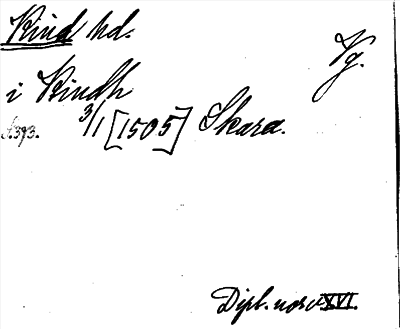 Kind hd.
Vg.
i Kindh
s.393. 3/1 [1505] Skara.
Dipl. norv XVI.